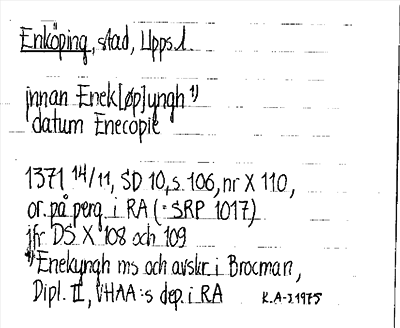 Enköping, stad, Upps. l.
innan Enek[øp]ungh 1)
datum Enecopie
1371 14/11, SD 10, s. 106, nr X 110,
or. på perg. i RA (= SRP 1017)
jfr DS X 108 och 109
1) Enekungh ms och avskr. i Brocman,
Dipl. II, VHAA:s dep. i RA K.A-J. 1975